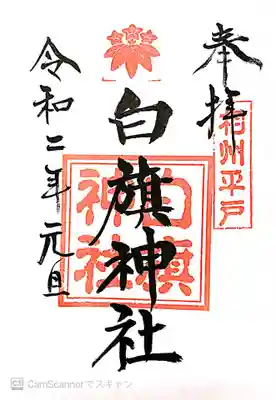 奉拝
相州平戸
白旗神社
白旗
神社
令和二年元旦
CamScannerでスキャン